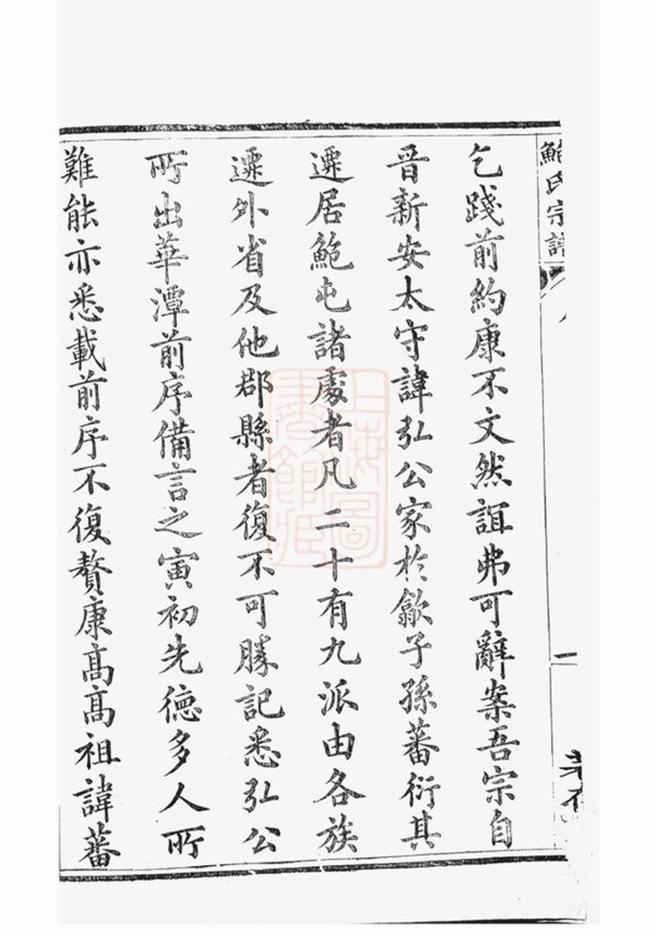 鮑氏宗譜
乞踐前約康不文然誼弗可辭案吾宗自
晉新安太守諱弘公家於歙子孫蕃衍其
遷居鮑屯諸處者凡二十有九派由各族
遷外省及他郡縣者復不可勝記悉弘公
所出華潭前序備言之寅初先德多人所
難能亦悉載前序不復贅康高高祖諱蕃
上海圖書館藏